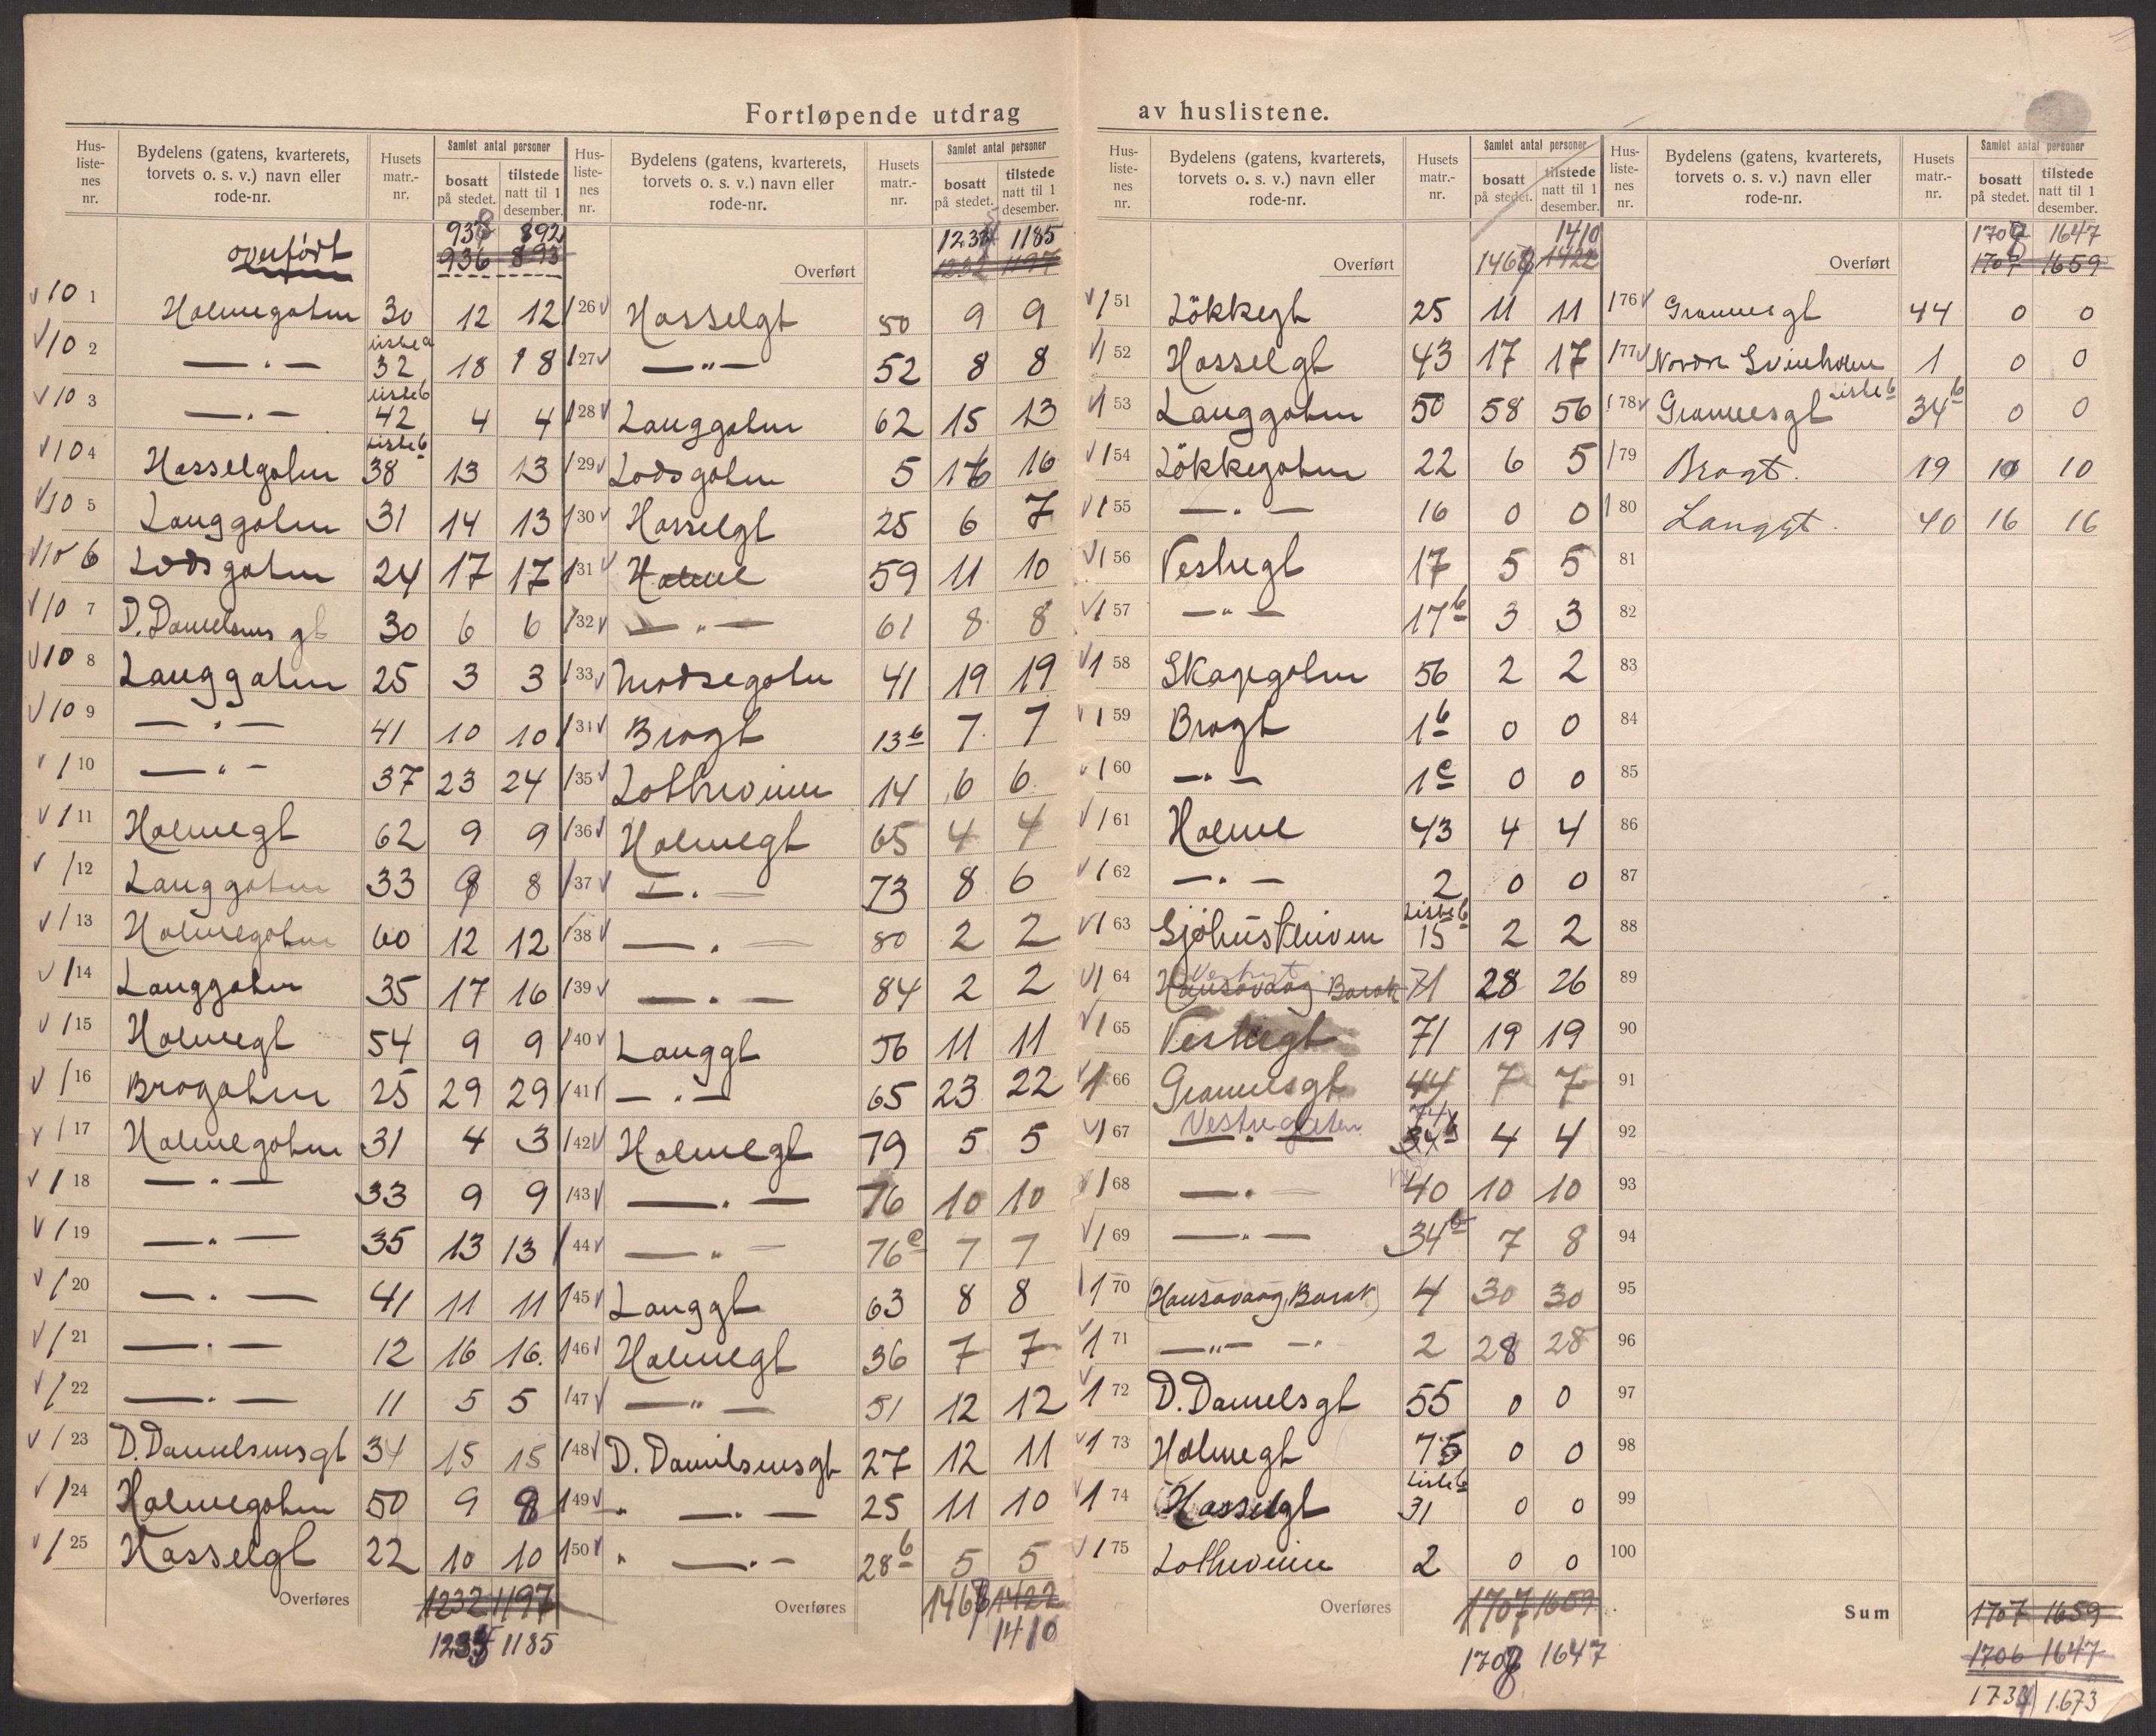 Fortløpende utdrag av huslistene.
Hus-liste-nes nr. Bydelens (gatens, kvarterets, torvets o. s. v.) navn eller rode-nr. Husets matr.-nr. Samlet antal personer bosatt på stedet. tilstede natt til 1 desember.
938 892
overført 936 893
10 1 Holmegaten 30 12 12
10 2 — " — liste a 32 18 18
10 3 — " — liste b 42 4 4
10 4 Hasselgaten liste b 38 13 13
10 5 Langgaten 31 14 13
10 6 Lodsgaten 24 17 17
10 7 D. Danielsens gt 30 6 6
10 8 Langgaten 25 3 3
10 9 — " — 41 10 10
1 10 — " — 37 23 24
1 11 Holmegt 62 9 9
1 12 Langgaten 33 8 8
1 13 Holmegaten 60 12 12
1 14 Langgaten 35 17 16
1 15 Holmegt 54 9 9
1 16 Brogaten 25 29 29
1 17 Holmegaten 31 4 3
1 18 — " — 33 9 9
1 19 — " — 35 13 13
1 20 — " — 41 11 11
1 21 — " — 12 16 16
1 22 — " — 11 5 5
1 23 D. Danielsensgt 34 15 15
1 24 Holmegaten 50 9 8
1 25 Hasselgt 22 10 10
Overføres 1232 1197
1185
Hus-liste-nes nr. Bydelens (gatens, kvarterets, torvets o. s. v.) navn eller rode-nr. Husets matr.-nr. Samlet antal personer bosatt på stedet. tilstede natt til 1 desember.
1185
Overført 1232 1197
1 26 Hasselgt 50 9 9
1 27 — " — 52 8 8
1 28 Langgaten 62 15 13
1 29 Lodsgaten 5 16 16
1 30 Hasselgt 25 6 7
1 31 Holme 59 11 10
1 32 — " — 61 8 8
1 33 41 19 19
1 34 Brogt 13b 7 7
1 35 Lotheveien 14 6 6
1 36 Holmegt 65 4 4
1 37 — " — 73 8 6
1 38 — " — 80 2 2
1 39 — " — 84 2 2
1 40 Langgt 56 11 11
1 41 — " — 65 23 22
1 42 Holmegt 79 5 5
1 43 — " — 76 10 10
1 44 — " — 76c 7 7
1 45 Langgt 63 8 8
1 46 Holmegt 36 7 7
1 47 — " — 51 12 12
1 48 D. Danielsensgt 27 12 11
1 49 " — " — 25 11 10
1 50 " — " — 28b 5 5
Overføres 1468 1422
1410
Hus-liste-nes nr. Bydelens (gatens, kvarterets, torvets o. s. v.) navn eller rode-nr. Husets matr.-nr. Samlet antal personer bosatt på stedet. tilstede natt til 1 desember.
1410
Overført 1468 1422
1 51 Lökkegt 25 11 11
1 52 Hasselgt 43 17 17
1 53 Langgaten 50 58 56
1 54 Lökkegaten 22 6 5
1 55 — " — 16 0 0
1 56 Vestregt 17 5 5
1 57 — " — 17b 3 3
1 58 Skapegaten 56 2 2
1 59 Brogt 1b 0 0
1 60 — " — 1c 0 0
1 61 Holme 43 4 4
1 62 — " — 2 0 0
1 63 liste b 15 2 2
1 64 Vestregt Hansavaag Barak 71 28 26
1 65 Vestregt 71 19 19
1 66 Grannesgt 44 7 7
1 67 Vestregaten — " — 74 34b 4 4
1 68 — " — 40 10 10
1 69 — " — 34b 7 8
1 70 (Hansavaag, Barak) 4 30 30
1 71 — " — 2 28 28
1 72 D. Danielsgt 55 0 0
1 73 Holmegt 75 0 0
1 74 Hasselgt liste b 31 0 0
1 75 Lotheveien 2 0 0
Overføres 1707 1659
1708 1647
Hus-liste-nes nr. Bydelens (gatens, kvarterets, torvets o. s. v.) navn eller rode-nr. Husets matr.-nr. Samlet antal personer bosatt på stedet. tilstede natt til 1 desember.
1708 1647
Overført 1707 1659
1 76 Grannesgt 44 0 0
1 77 Nordre Svinholm 1 0 0
1 78 Grannesgt liste b 34b 0 0
1 79 Brogt. 19 10 10
1 80 Langgt. 40 16 16
81
82
83
84
85
86
87
88
89
90
91
92
93
94
95
96
97
98
99
100
Sum 1707 1659
1706 1647
1734 1673